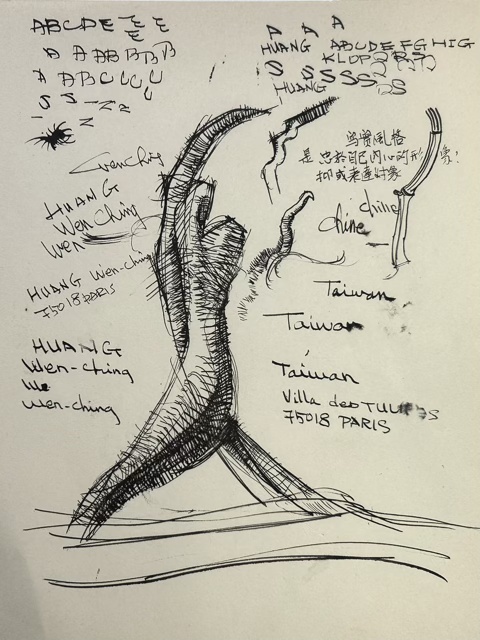 ABCDE E E
E
A A ABBBBB
A ABCCCC
S S
Z
A A A
HUANG ABCDEFGHIG
KLOP
S S SSSS
HUANG
是忠於自己內心的形象!
抑或
Wen Ching
HUANG
Wen Ching
Wen
chine
chine
HUANG Wen-ching
75018 PARIS
Taiwan
Taiwan
HUANG
Wen-ching
We
Wen-ching
Taiwan
Villa des TULIPES
75018 PARIS